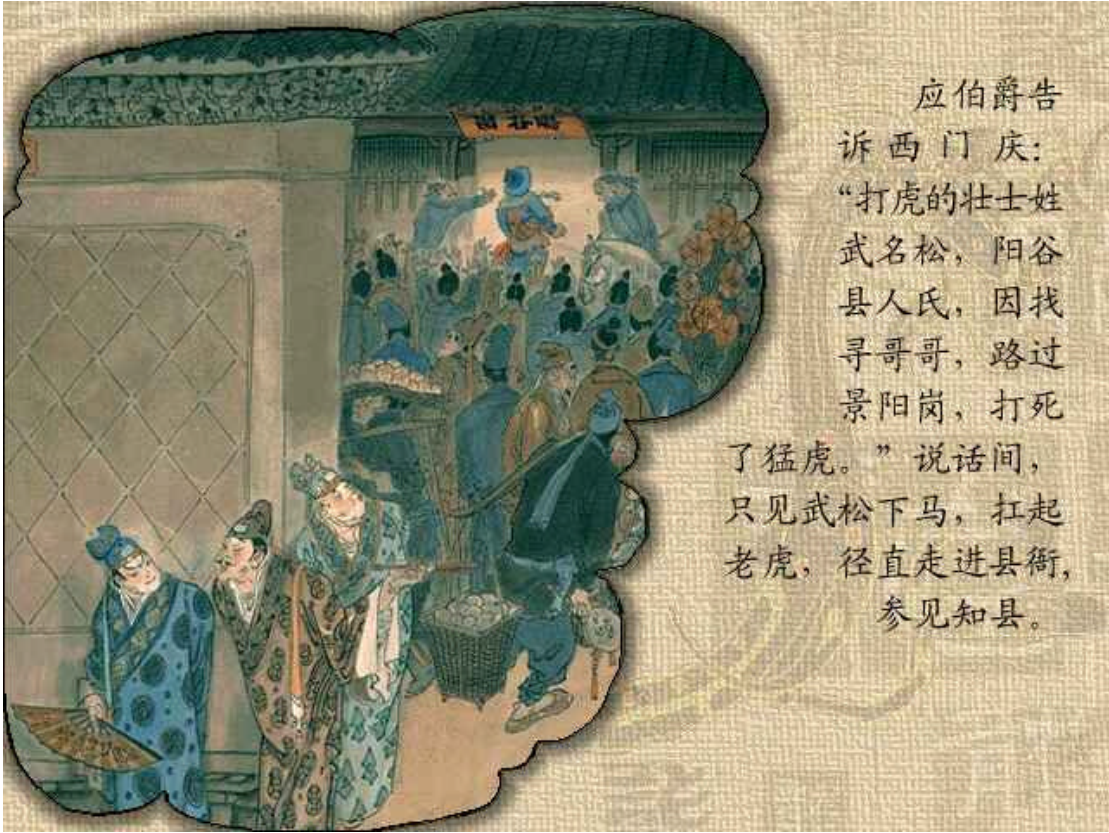 应伯爵告
诉西门庆：
“打虎的壮士姓
武名松，阳谷
县人氏，因找
寻哥哥，路过
景阳岗，打死
了猛虎。”说话间，
只见武松下马，扛起
老虎，径直走进县衙，
参见知县。